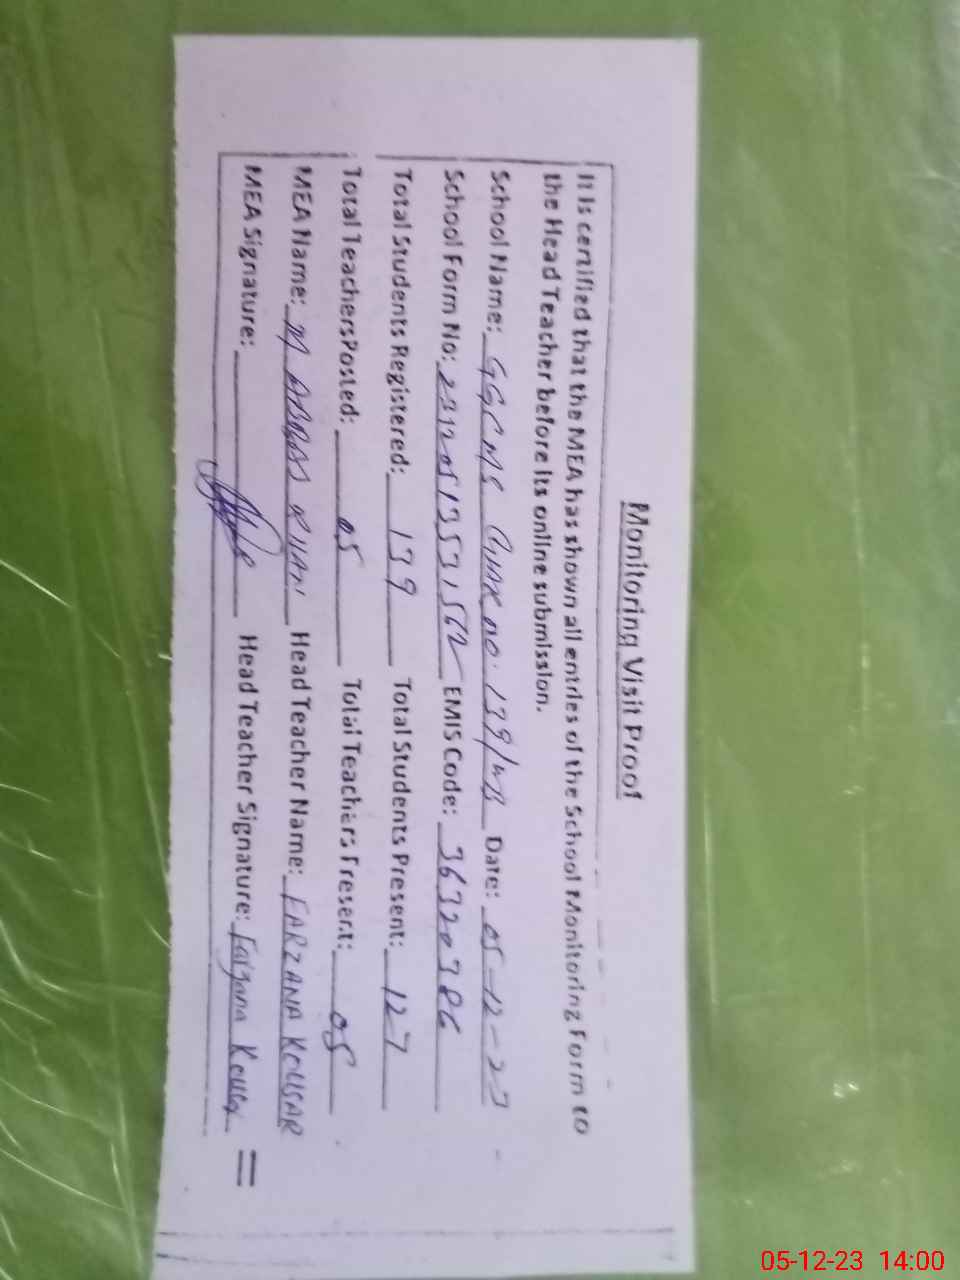 Monitoring Visit Proof
It Is certified that the MEA has shown all entries of the School Monitoring Form to
the Head Teacher before its online submission.
School Name: GGCMS CHAK NO. 139/WB Date: 05-12-23
School Form No: EMIS Code: 36320386
Total Students Registered: 139 Total Students Present: 127
Total Teachers Posted: 05 Total Teachers Present: 05
MEA Name: M ABBAS Head Teacher Name: FARZANA KOUSAR
MEA Signature: Head Teacher Signature: Farzana Kousar
05-12-23 14:00